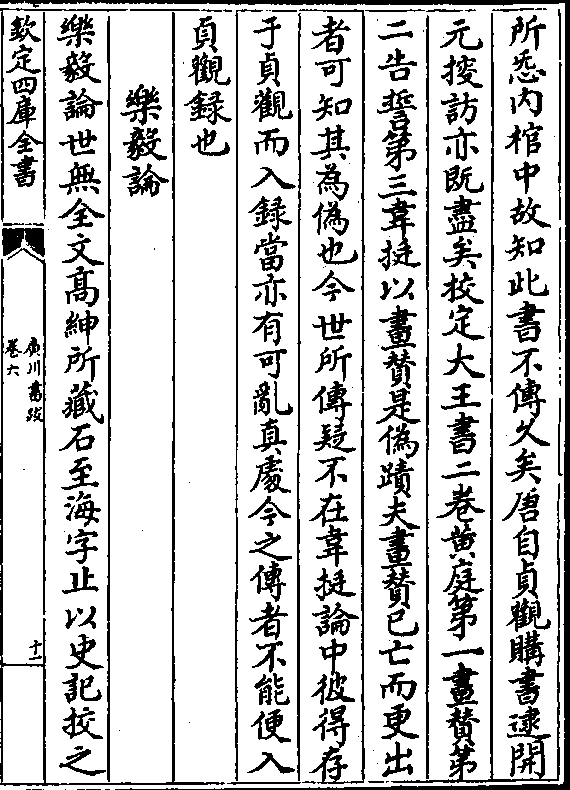 所悉内棺中故知此書不傳久矣唐自貞觀購書逮開
元搜訪亦既盡矣校定大王書二卷黄庭第一畫賛第
二告誓第三韋挺以畫賛是偽蹟夫畫賛已亡而更出
者可知其為偽也今世所傳疑不在韋挺論中彼得存
于貞觀而入録當亦有可亂真處今之傳者不能便入
貞觀録也
樂毅論
樂毅論世無全文髙紳所藏石至海字止以史記挍之
欽定四庫全書
廣川書跋
卷六
十一